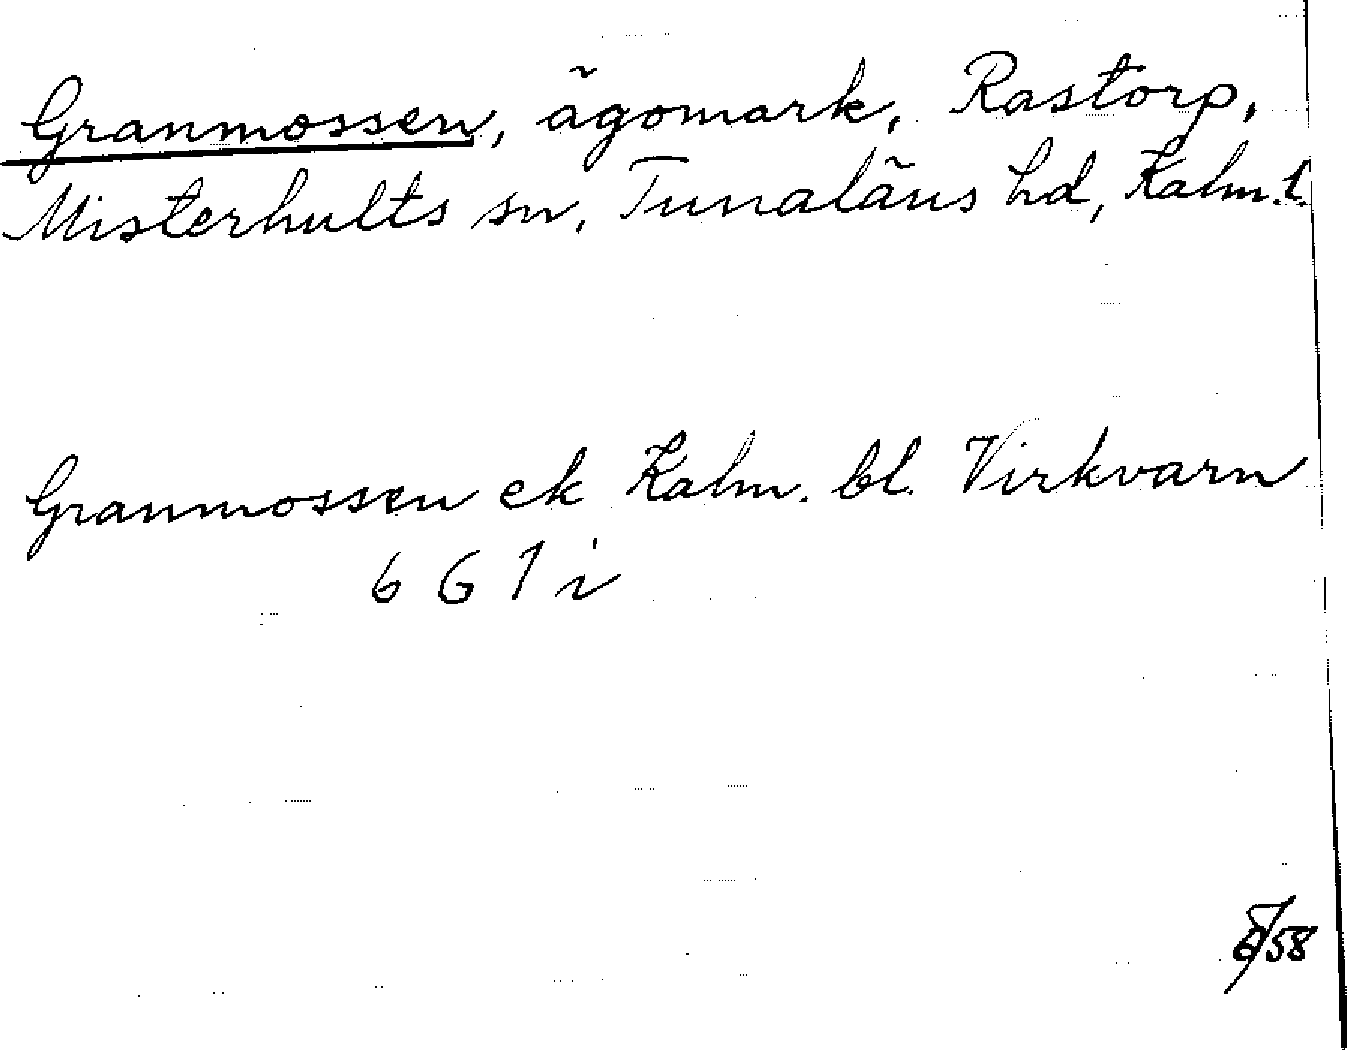 Granmossen, ägomark, Rastorp,
Misterhults sn, Tunaläns hd, Kalm. l.
Granmossen ek Kalm. bl. Virkvarn
6 G 1 i